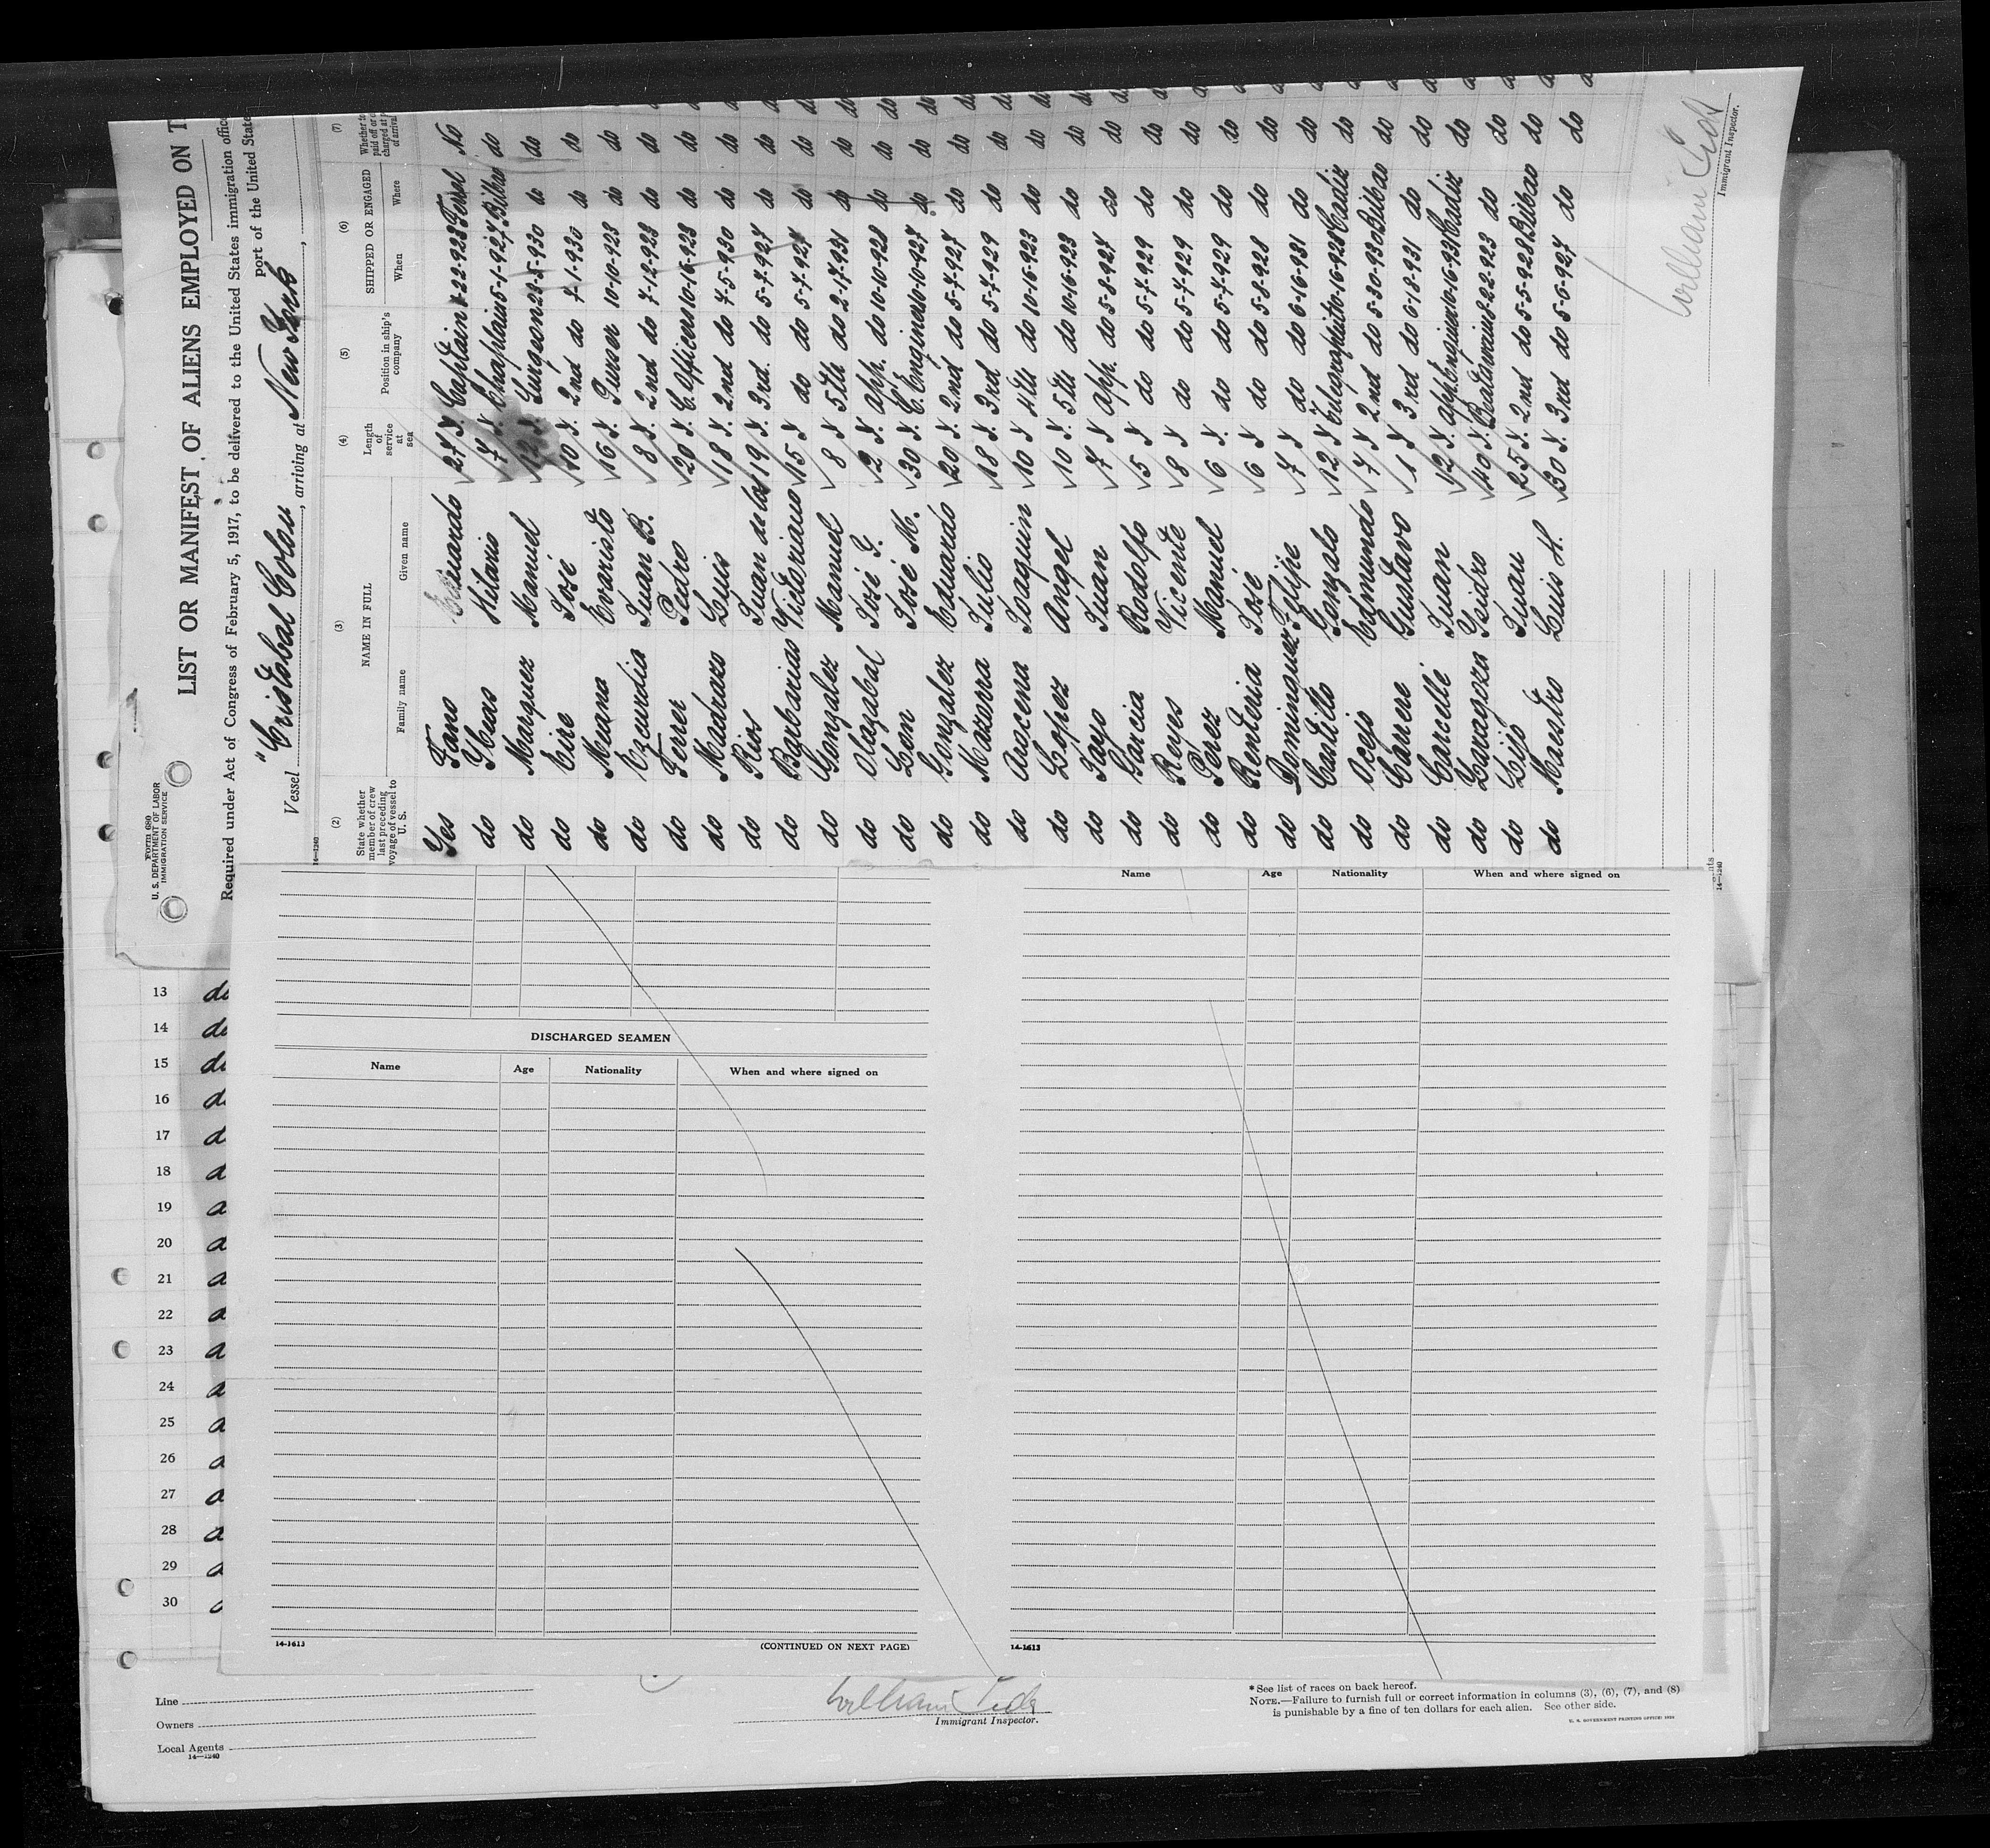 Form 680
U. S. DEPARTMENT OF LABOR
IMMIGRATION SERVICE
LIST OR MANIFEST OF ALIENS EMPLOYED ON T
Required under Act of Congress of February 5, 1917, to be delivered to the United States immigration office
port of the United State
Vessel "Cristobal Colon, arriving at New York,
14—1240
(2) (3) (4) (5) (6) (7)
State whether member of crew last preceding voyage of vessel to U. S.
NAME IN FULL
Family name Given name
Length of service at sea
Position in ship's company
SHIPPED OR ENGAGED
When Where
Yes Fano Eduardo 27 Y. Captain 1-22-923 Ferrol No
do Ybeas Hilario 7 Y. Chaplain 5-1-927 Bilbao do
do Marquez Manuel 12 Y. Surgeon 23-5-930 do do
do Eire José 10 Y. 2nd do 7-1-930 do do
do Meana Evaristo 16 Y. Purser 10-10-923 do do
do Ezcurdia Juan B. 8 Y. 2nd do 7-12-923 do do
do Ferrer Pedro 20 Y. C. Officers 10-16-923 do do
do Madrazo Luis 18 Y. 2nd do 7-5-930 do do
do Rios Juan de la 19 Y. 3rd. do 5-7-927 do do
do Barbarias Victoriano 15 Y do do 5-7-927 do do
do Gonzalez Manuel 8 Y 5th do 2-17-931 do do
do Olazabal José Y. 2 Y. App. do 10-10-928 do do
do Leon José M. 30 Y. C. Engineer 10-10-927 do do
do Gonzalez Eduardo 20 Y. 2nd do 5-7-927 do do
do Mazorra Julio 18 Y. 3rd do 5-7-929 do do
do Arocena Joaquin 10 Y 4th do 10-16-923 do do
do Lopez Angel 10 Y. 5th do 10-16-923 do do
do Sayo Juan 7 Y App. do 5-8-927 do do
do Garcia Rodolfo 5 Y do do 5-7-929 do do
do Reyes Vicente 8 Y do do 5-7-929 do do
do Perez Manuel 6 Y. do do 5-7-929 do do
do Renteria José 6 Y do do 5-8-928 do do
do Dominguez Felipe 7 Y do do 6-16-931 do do
do Castillo Gonzalo 12 Y Telegraphist 10-16-928 Cadiz do
do Ocejo Edmundo 7 Y 2nd do 5-30-930 Bilbao do
do Carrere Gustavo 1 Y 3rd do 6-18-931 do do
do Carcelle Juan 2 Y. App. Engineer 10-16-931 Cadiz do
do Zaragoza Isidro 40 Y. Boatswain 8-22-923 do do
do Lijo Juan 25 Y. 2nd do 5-5-928 Bilbao do
do Maestro Luis H. 30 Y. 3rd do 5-6-927 do do
Immigrant Inspector.
14—1240
Name Age Nationality When and where signed on
DISCHARGED SEAMEN
Name Age Nationality When and where signed on
14-1613 (CONTINUED ON NEXT PAGE)
14-1613
13 do
14 do
15
16
17
18
19
20
21
22
23
24
25
26
27
28
29
30
Line
Owners
Local Agents
14—1240
Immigrant Inspector.
*See list of races on back hereof.
NOTE.—Failure to furnish full or correct information in columns (3), (6), (7), and (8)
is punishable by a fine of ten dollars for each alien. See other side.